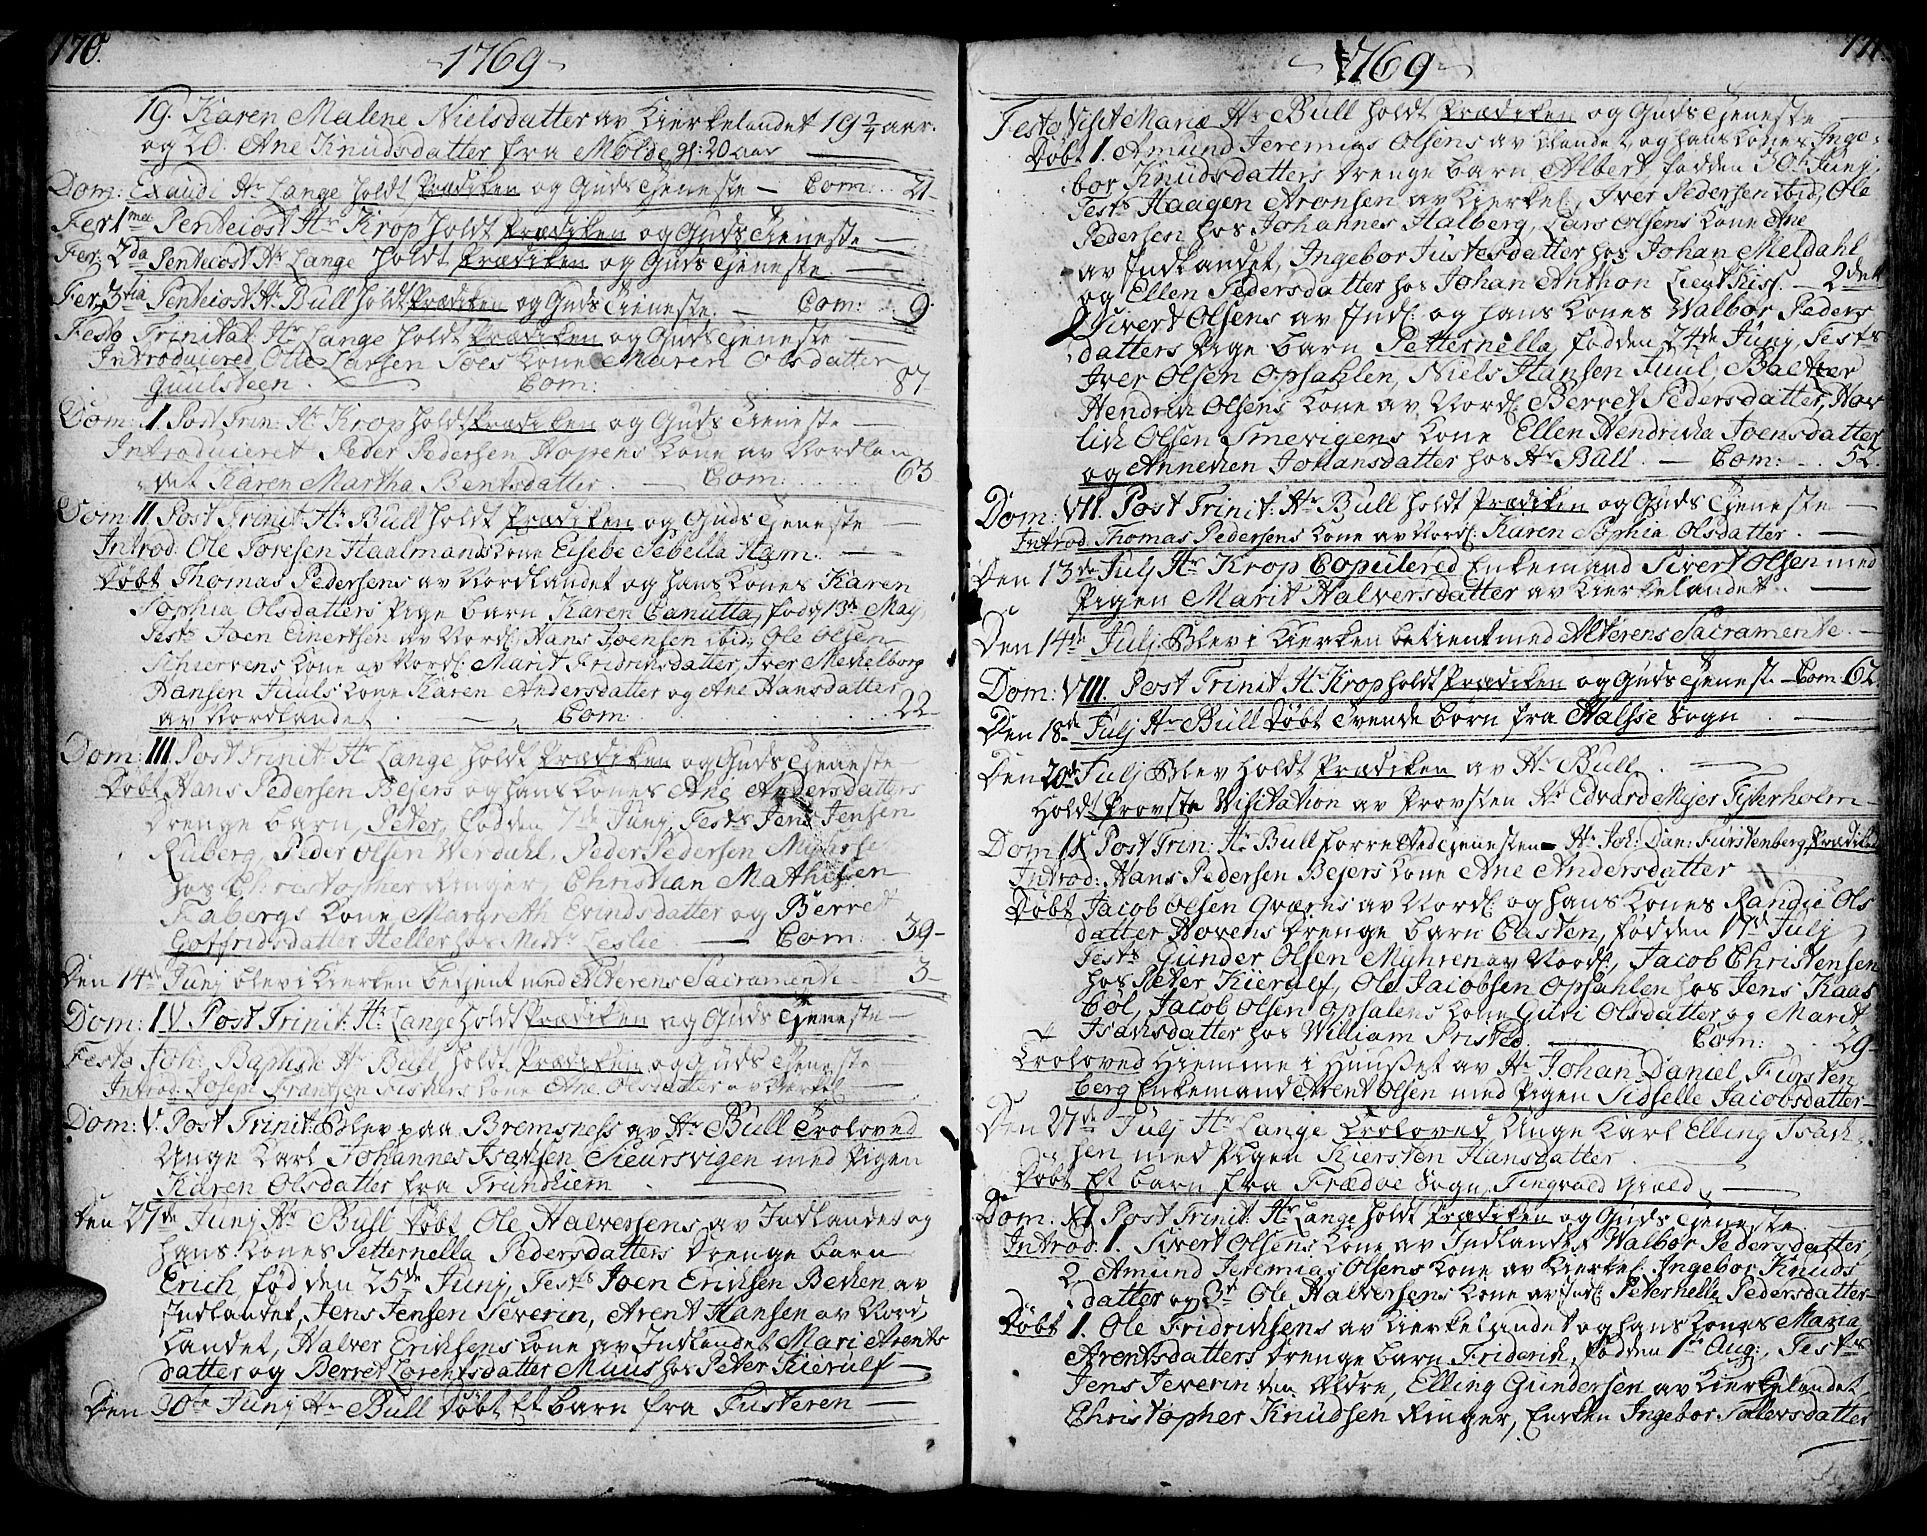 170.
-1769-
19. Karen Malene Nielsdatter av Kierkelandet 19 2/4 aar.
og 20. Ane Knudsdatter fra Molde gl: 20 aar
Dom: Exaudi Hr Lange holdt Prædiken og Guds Tieneste — Com: 21-
Fer 1mæ Pentecost Hr Krop holdt Prædiken og Guds Tieneste —
Fer: 2da Pentecost Hr Lange holdt Prædiken og Guds Tieneste —
Fer: 3tia Pentecost Hr Bull holdt Prædiken og Guds Tieneste. — Com: 9
Festo Trinitat: Hr Lange holdt Prædiken og Guds Tieneste —
Introduiered Olle Larsen Toes Kone Maren Olsdatter
Guulsdeen. Com: 87-
Dom: I Post Trin: Hr Krop holdt Prædiken og Guds Tieneste —
Introduieret Peder Pedersen Hopens Kone av Nordlan
det Karen Martha Bentsdatter — Com: 63
Dom: II Post Trinit Hr Bull holdt Prædiken og Guds Tieneste —
Introd: Ole Toresen Haalmands Kone Elsebe Sebella Ham. —
Døbt Thomas Pedersens av Nordlandet og hans Kones Karen
Sophia Olsdatters Pige barn Karen Canutta, fød 13de Maij,
Testr Joen Einertsen av Nordl: Hans Joensen ibid: Ole Olsen
Schiervens Kone av Nordl: Marit Fridrichsdatter, Iver Mechelborg
Hansen Juuls Kone Karen Andersdatter og Ane Hansdatter
av Nordlandet. — Com: 22-
Dom: III Post Trinit Hr Lange holdt Prædiken og Guds Tieneste
Døbt Hans Pedersen Bejers og hans Kones Ane Andersdatters
Drenge barn, Peter, fødden 7de Junj, Testr Jens Jensen
Ruberg, Peder Olsen Werdahl, Peder Pedersen
hos Christopher Ringer, Christian Mathisen
Fabergs Kone Margreth Evindsdatter og Berret
Gotfridsdatter Heller hos Mistr Leslie — Com: 39-
Den 14de Junj blev i Kierken betjent med Alterens Sacramente 3-
Dom: IV. Post Trinit: Hr Lange holdt Prædiken og Guds Tjeneste —
Festo Joh: Baptistæ Hr Bull holdt Prædiken og Guds Tjeneste
Introd: Joseph Frantzen Fischers Kone Ane Olsdatter av Kierkel —
Dom: V. Post Trinit: Blev paa Bremsness av Hr Bull Troloved
Unge Karl Johannes Isachsen Sieursvigen med Pigen
Karen Olsdatter fra Trundhiem. —
Den 27de Junj Hr Bull Døbt Ole Halversens av Indlandet og
hans Kones Petternella Pedersdatters Drenge barn
Erich, fødden 25de Junj, Tests Joen Erichsen Bechen av
Indlandet, Jens Jensen Severin, Arent Hansen av Nord
landet, Halver Erichsens Kone av Indlandet Mari Arents
datter og Berret Lorentsdatter Maus hos Peter Kierulf —
Den 30te Junj Hr Bull Døbt Et barn fra Tusteren —
171.
-1769-
Festo Visit Mariæ Hr Bull holdt Prædiken og Guds Tjeneste
Døbt 1. Amund Jeremias Olsens av Landet og hans Kones Inge
bor Knudsdatters Drenge barn Albert, fødden 30te Junj,
Tests Haagen Aronsen av Kierkel:, Iver Pedersen ibid, Ole
Pedersen hos Johannes Halberg, Lars Olsens Kone Ane
av Indlandet, Ingebor Justesdatter hos Johan Meldahl
og Ellen Pedersdatter hos Johan Anthon Lieut Kisf. — 2det
Sivert Olsens av Indl: og hans Kones Walbor Peders
datters Pige barn Petternella, fødden 24de Junj, Tests
Iver Olsen Opsahlen, Niels Hansen Juul, Baltzer
Hendrich Olsens Kone av Nordl: Berret Pedersdatter, Hav
lich Olsen Smevigens Kone Ellen Hendricha Joensdatter
og Annechen Johansdatter hos Hr Bull. — Com: 52.
Dom: VII. Post Trinit: Hr Bull holdt Prædiken og Guds Tjeneste —
Introd: Thomas Pedersens Kone av Nordl: Karen Sophia Olsdatter. —
Den 13de Julj Hr Krop Copulered Enkemand Sivert Olsen med
Pigen Marit Halversdatter av Kierkelandet. —
Den 14de Julj Blev i Kierken betient med Alterens Sacramente. —
Dom: VIII. Post Trinit Hr Krop holdt Prædiken og Guds Tjenest. — Com: 62.
Den 18de Julj Hr Bull Døbt Tvende børn fra Halsse Sogn. —
Den 20de Julj Blev holdt Prædiken av Hr Bull. —
Holdt Provste Visitation av Provsten Hr Edvard Mejer Tyterholm —
Dom IX Post Trin: Hr Bull forretted tjenesten — Hr Joh: Dan: Fürstenberg Prædiked
Introd: Hans Pedersen Bejers Kone Ane Andersdatter
Døbt Jacob Olsen Qværnes av Nordl: og hans Kones Randie Ols
datter Hovens Drenge barn Casten, fødden 17de Julj
Tests Gunder Olsen Myhren av Nordl:, Jacob Christensen
hos Peter Kierulf, Ole Jacobsen Opsahlen hos Jens Kaas
bøl, Jacob Olsen Opsalens Kone Guri Olsdatter og Marit
Isachsdatter hos William Pristed. — Com: 29-
Troloved Hiemme i Huusset av Hr Johan Daniel Fürsten
berg Enkemand Arent Olsen med Pigen Sidselle Jacobsdatter —
Den 27de Julj Hr Lange Troloved Unge Karl Elling Isach
sen med Pigen Kiersten Hansdatter
Døbt Et barn fra Frædøe Sogn, Tingvold Gield. —
Dom: XI Post Trinit: Hr Lange holdt Prædiken og Guds Tjeneste
Introd: 1. Sivert Olsens Kone av Indlandet Walbor Pedersdatter,
2. Amund Jeremias Olsens Kone av Kierkel: Ingebor Knuds
datter og 3de Ole Halversens Kone av Indl: Peternella Pedersdatter —
Døbt 1. Ole Fridrichsens av Kierkelandet og hans Kones Maria
Arentsdatters Drenge barn Friderich, fødden 1te Aug:, Testes
Jens Severin den Ældre, Elling Gundersen av Kierkelandet,
Christopher Knudsen Ringer, Enken Ingebor Tollersdatter